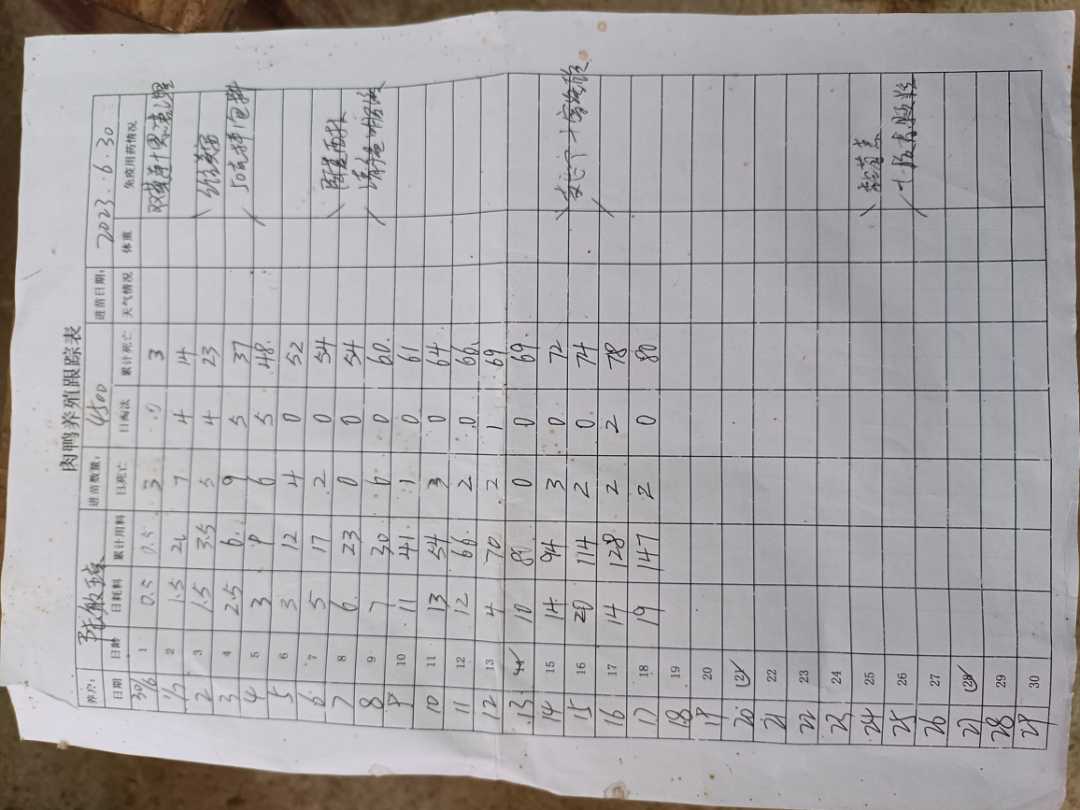 肉鸭养殖跟踪表
养户： 张敏 进苗数量： 4500 进苗日期： 2023.6.30
日期 日龄 日耗料 累计用料 日死亡 日淘汰 累计死亡 天气情况 体重 免疫用药情况
30/6 1 0.5 0.5 3 0 3
1/7 2 1.5 2 7 4 14
2 3 1.5 3.5 5 4 23
3 4 2.5 6 9 5 37 50
4 5 3 9 6 5 48
5 6 3 12 4 0 52
6 7 5 17 2 0 54
7 8 6 23 0 0 54
8 9 7 30 6 0 60
9 10 11 41 1 0 61
10 11 13 54 3 0 64
11 12 12 66 2 0 66
12 13 4 70 2 1 69
13 14 10 80 0 0 69
14 15 14 94 3 0 72
15 16 20 114 2 0 74
16 17 14 128 2 2 78
17 18 19 147 2 0 80
18 19
19 20
20 21
21 22
22 23
23 24
24 25
25 26
26 27
27 28
28 29
29 30